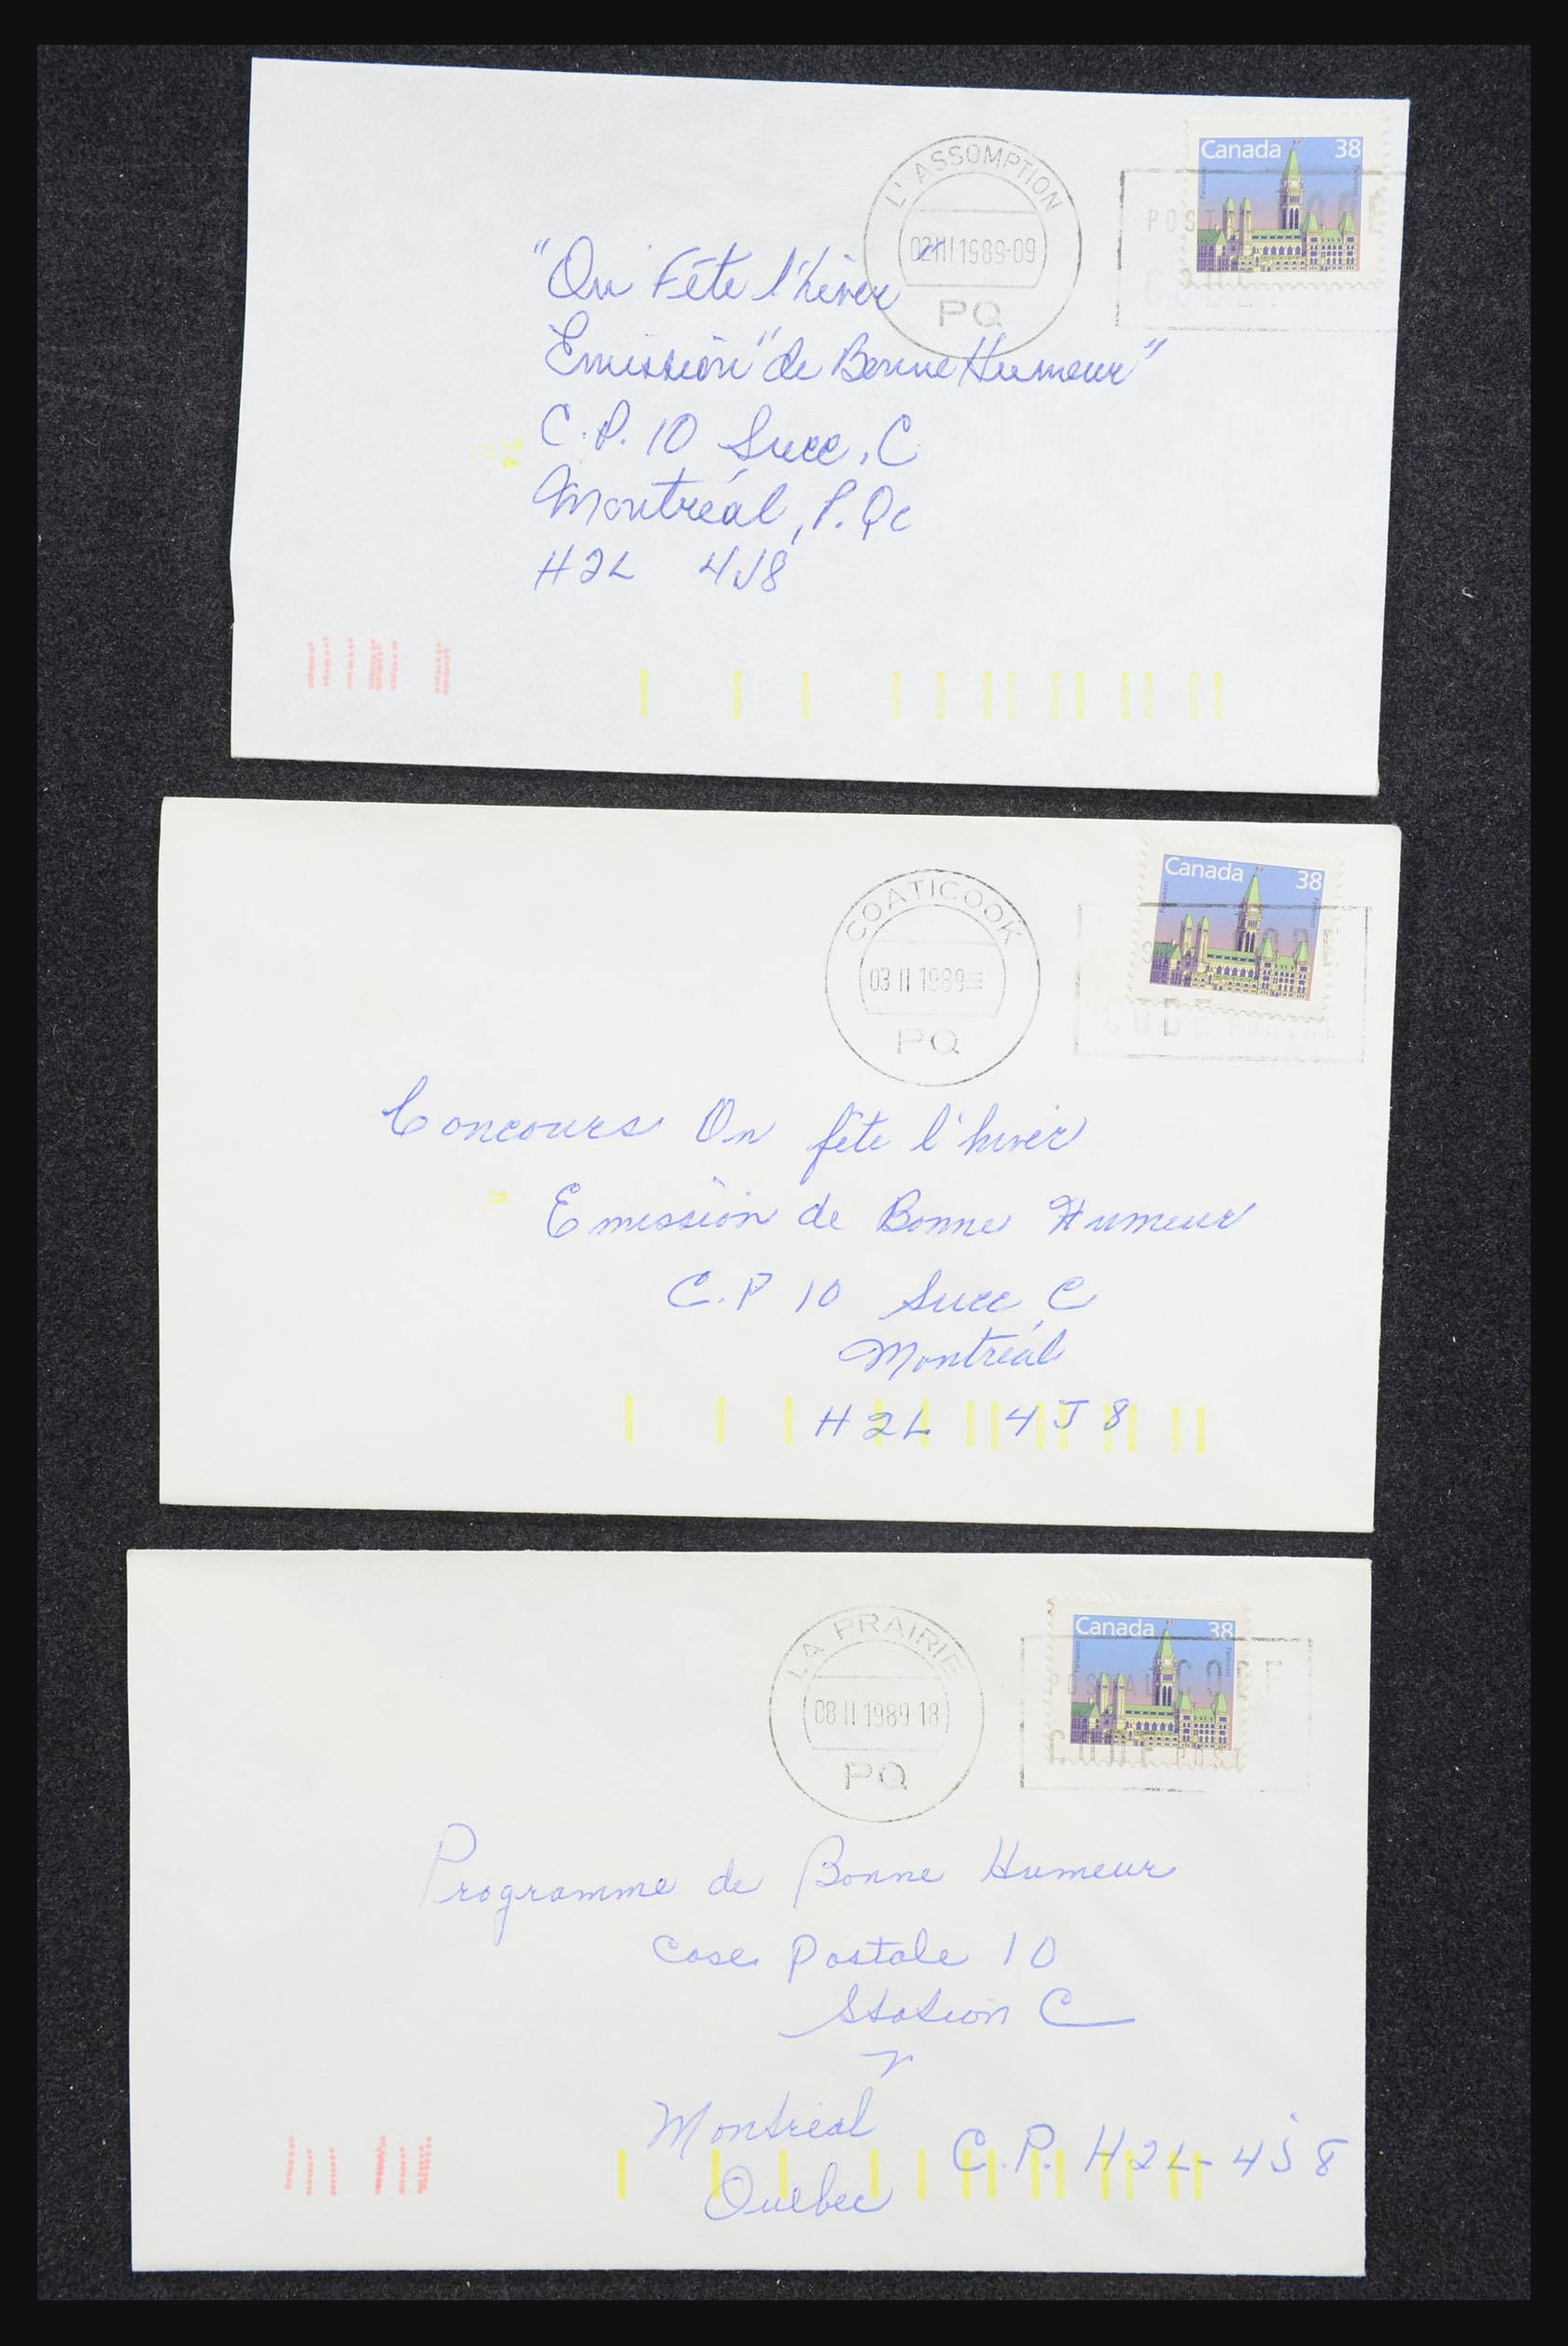 L'ASSOMPTION
02 III 1989-09
PQ
Canada 38
POST
CODE
"On Fête l'hiver"
Emission "de Bonne Humeur"
C.P. 10 Succ. C
Montréal, P. Qc
H2L 4J8
COATICOOK
03 II 1989
PQ
Canada 38
CODE
Concours On fête l'hiver
Emission de Bonne Humeur
C.P 10 Succ C
Montréal
H2L 4J8
LA PRAIRIE
08 II 1989-18
PQ
Canada 38
POSTAL CODE
CODE POST
Programme de Bonne Humeur
Case Postale 10
Station C
Montréal
C.P. H2L-4J8
Québec